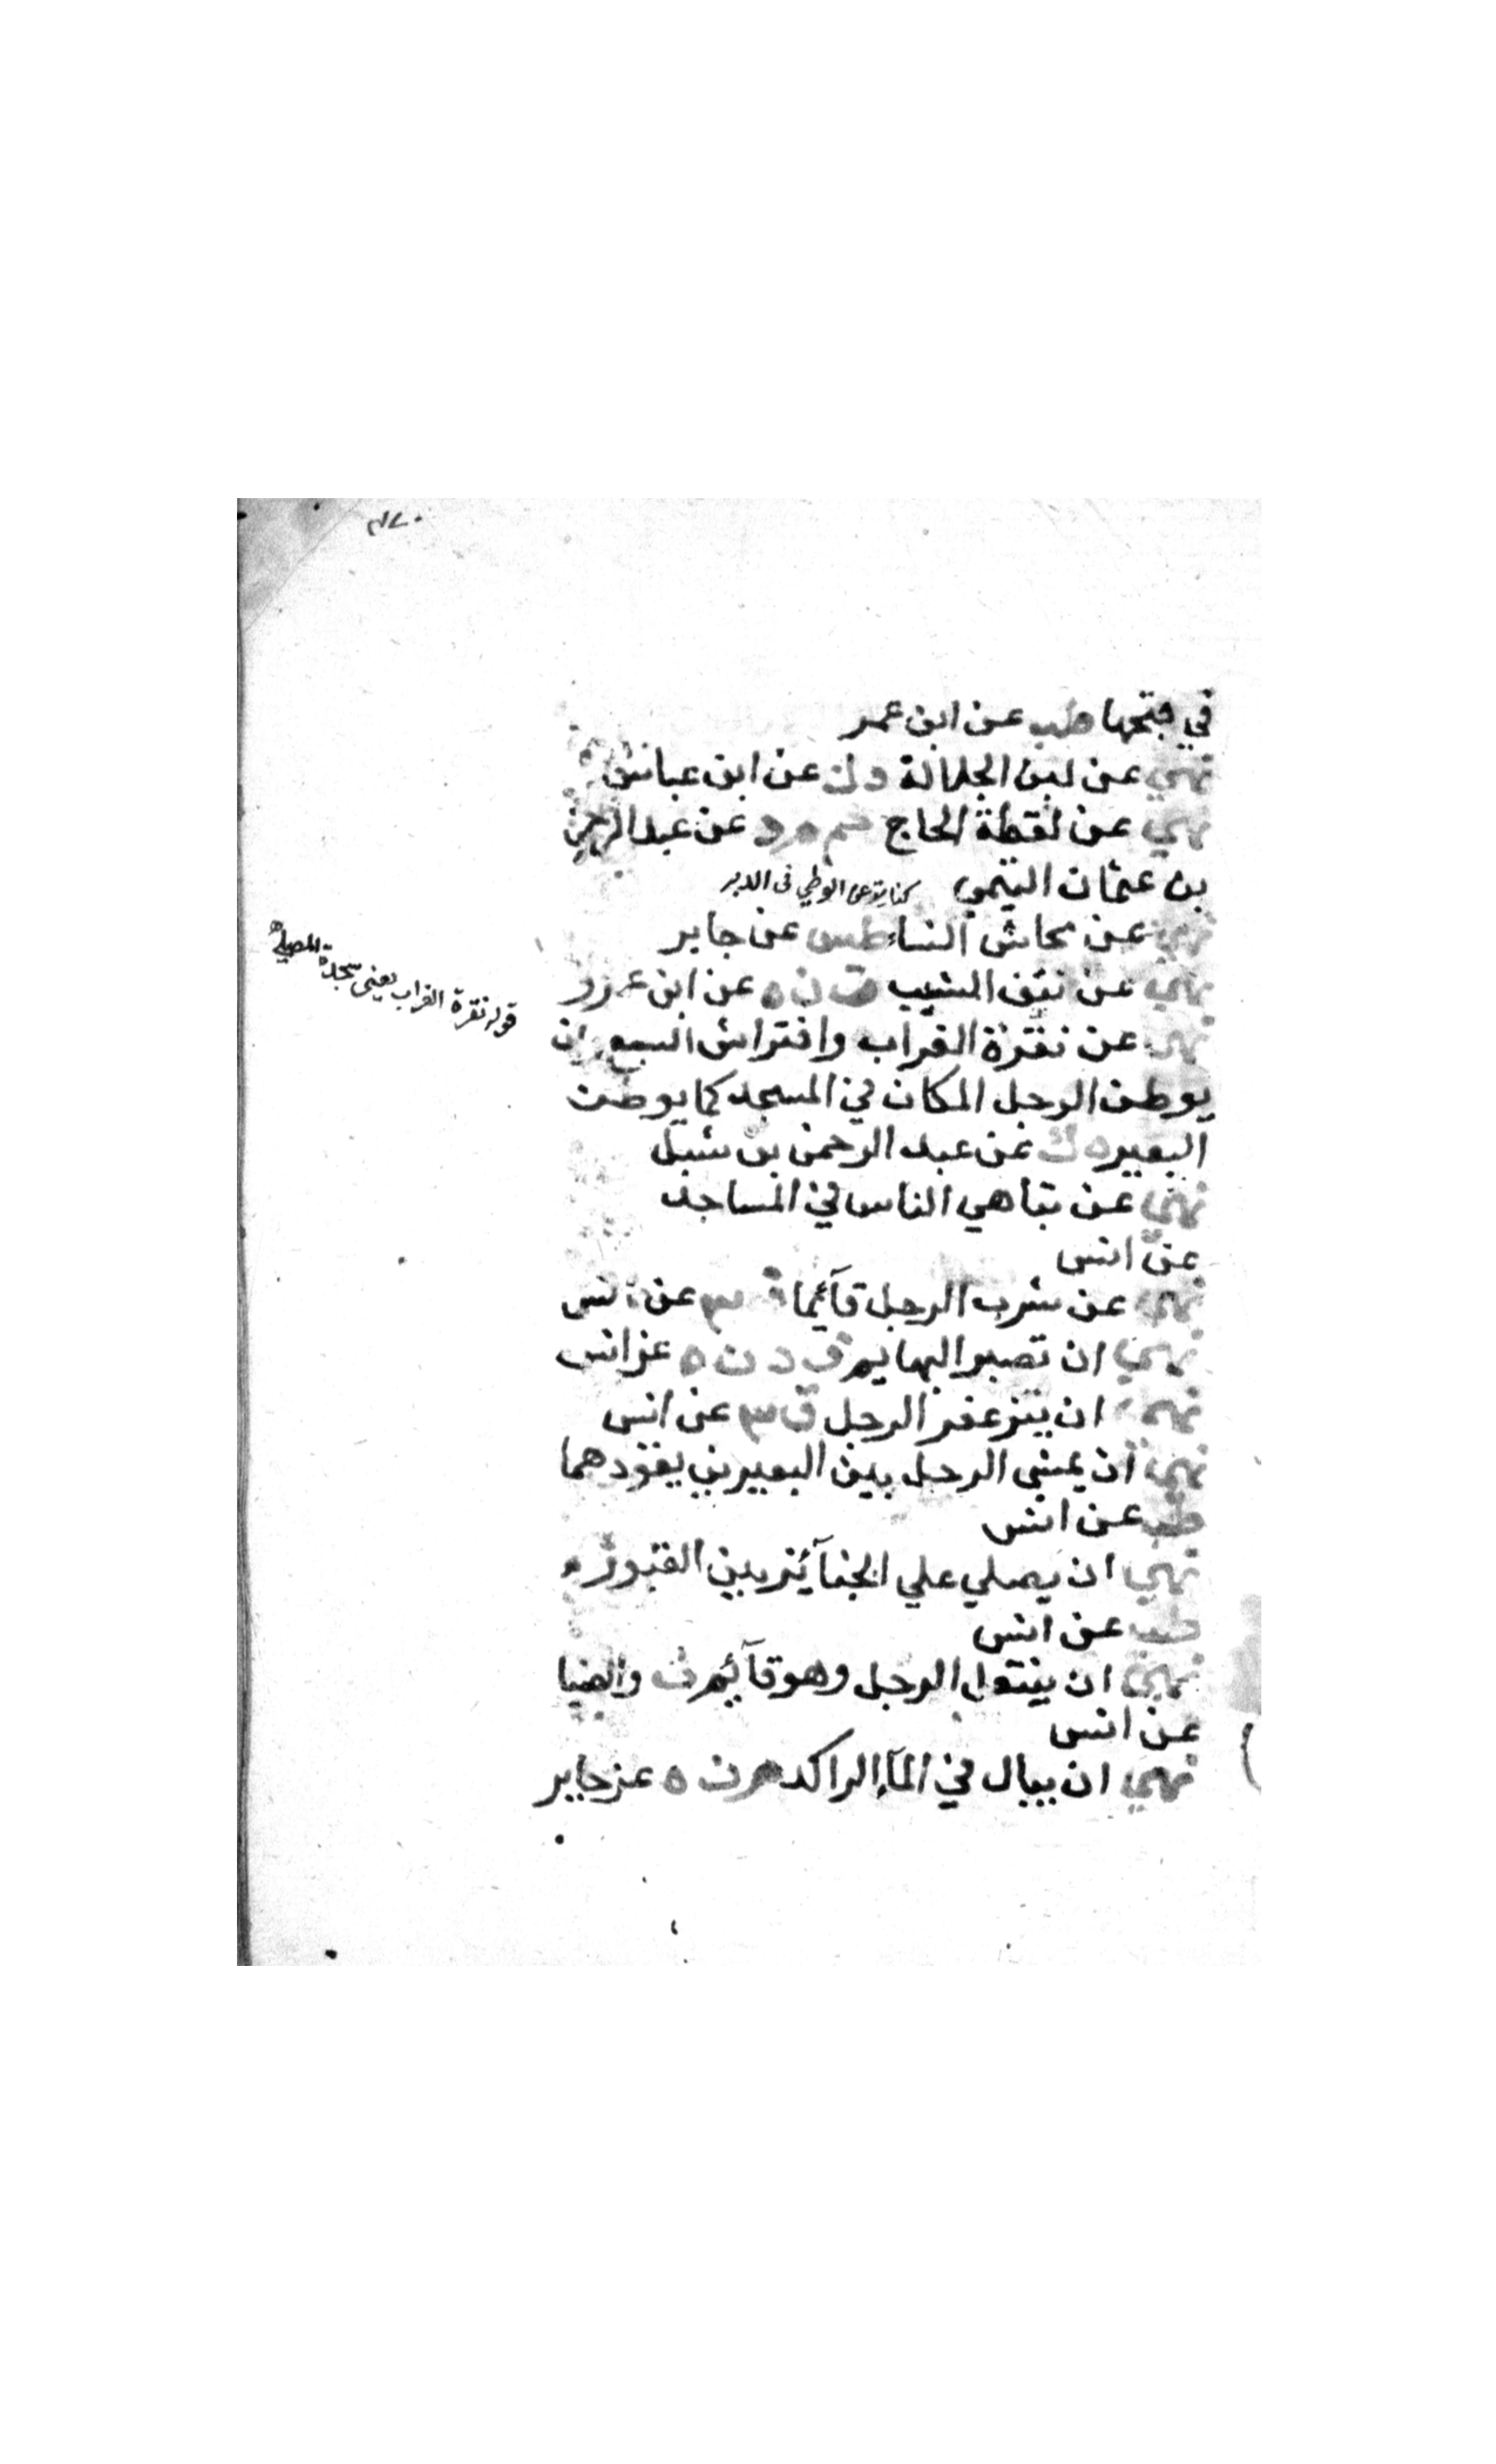 في فتحها طب عن ابن عمر
نهي عن لبن الجلالة د ك عن ابن عباس
نهي عن لقطة الحاج حم م د عن عبد الرحمن
بن عثمان التيمي
كناية عن الوطي في الدبر
نهي عن محاش النساء طس عن جابر
نهي عن نتف الشيب ت ن ه عن ابن عمرو
نهي عن نقرة الغراب وافتراش السبع وان
يوطن الرجل المكان في المسجد كما يوطن
البعير ك عن عبد الرحمن بن شبل
قوله نقرة الغراب يعني سجدة المصلي
نهي عن تباهي الناس في المساجد
عن انس
نهي عن شرب الرجل قآئما عن انس
نهي ان تصبر البهايم ق د ن ه عن انس
نهي ان يتزعفر الرجل ق ٣ عن انس
نهي ان يمشي الرجل بين البعيرين يقودهما
طب عن انس
نهي ان يصلي علي الجنآئز بين القبور
طب عن انس
نهي ان ينتعل الرجل وهو قآئم ت والضيا
عن انس
نهي ان يبال في المآء الراكد م ن ه عن جابر